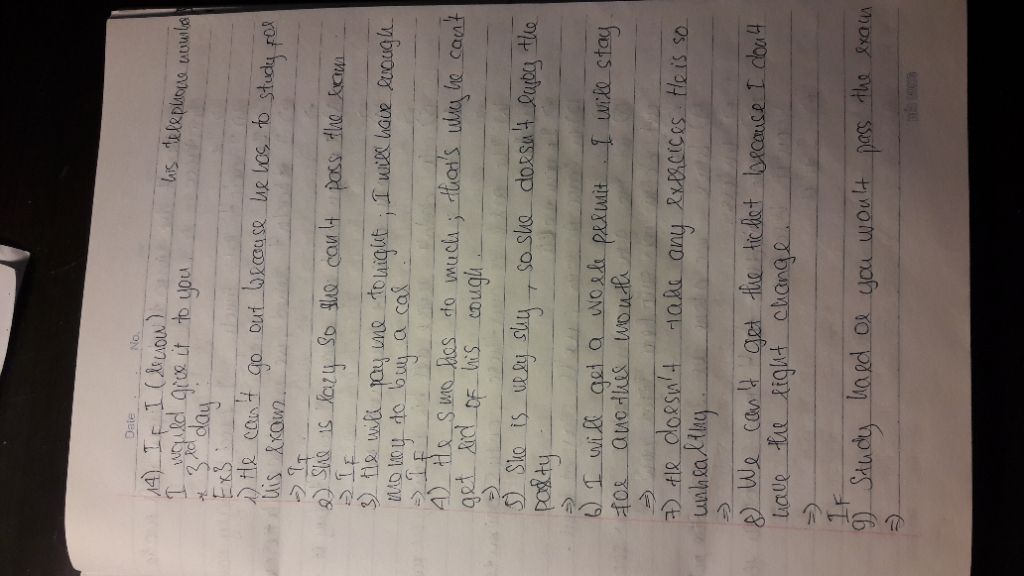 Date : No.
14) IF I (know) his telephone number
I would give it to you
* 3rd day
Ex3:
1) He can't go out because he has to study for
his exam.
=> If
2) She is lazy so she can't pass the exam
=> IF
3) He will pay me tonight ; I will have enough
money to buy a car.
=> IF
4) He smokes to much ; that's why he can't
get rid of his cough.
=>
5) She is very shy , so she doesn't enjoy the
party.
=>
6) I will get a work permit . I will stay
for another month
=>
7) He doesn't take any exercices. He is so
unhealthy.
=>
8) We can't get the ticket because I don't
have the right change.
=>
IF
9) Study hard or you won't pass the exam
=>